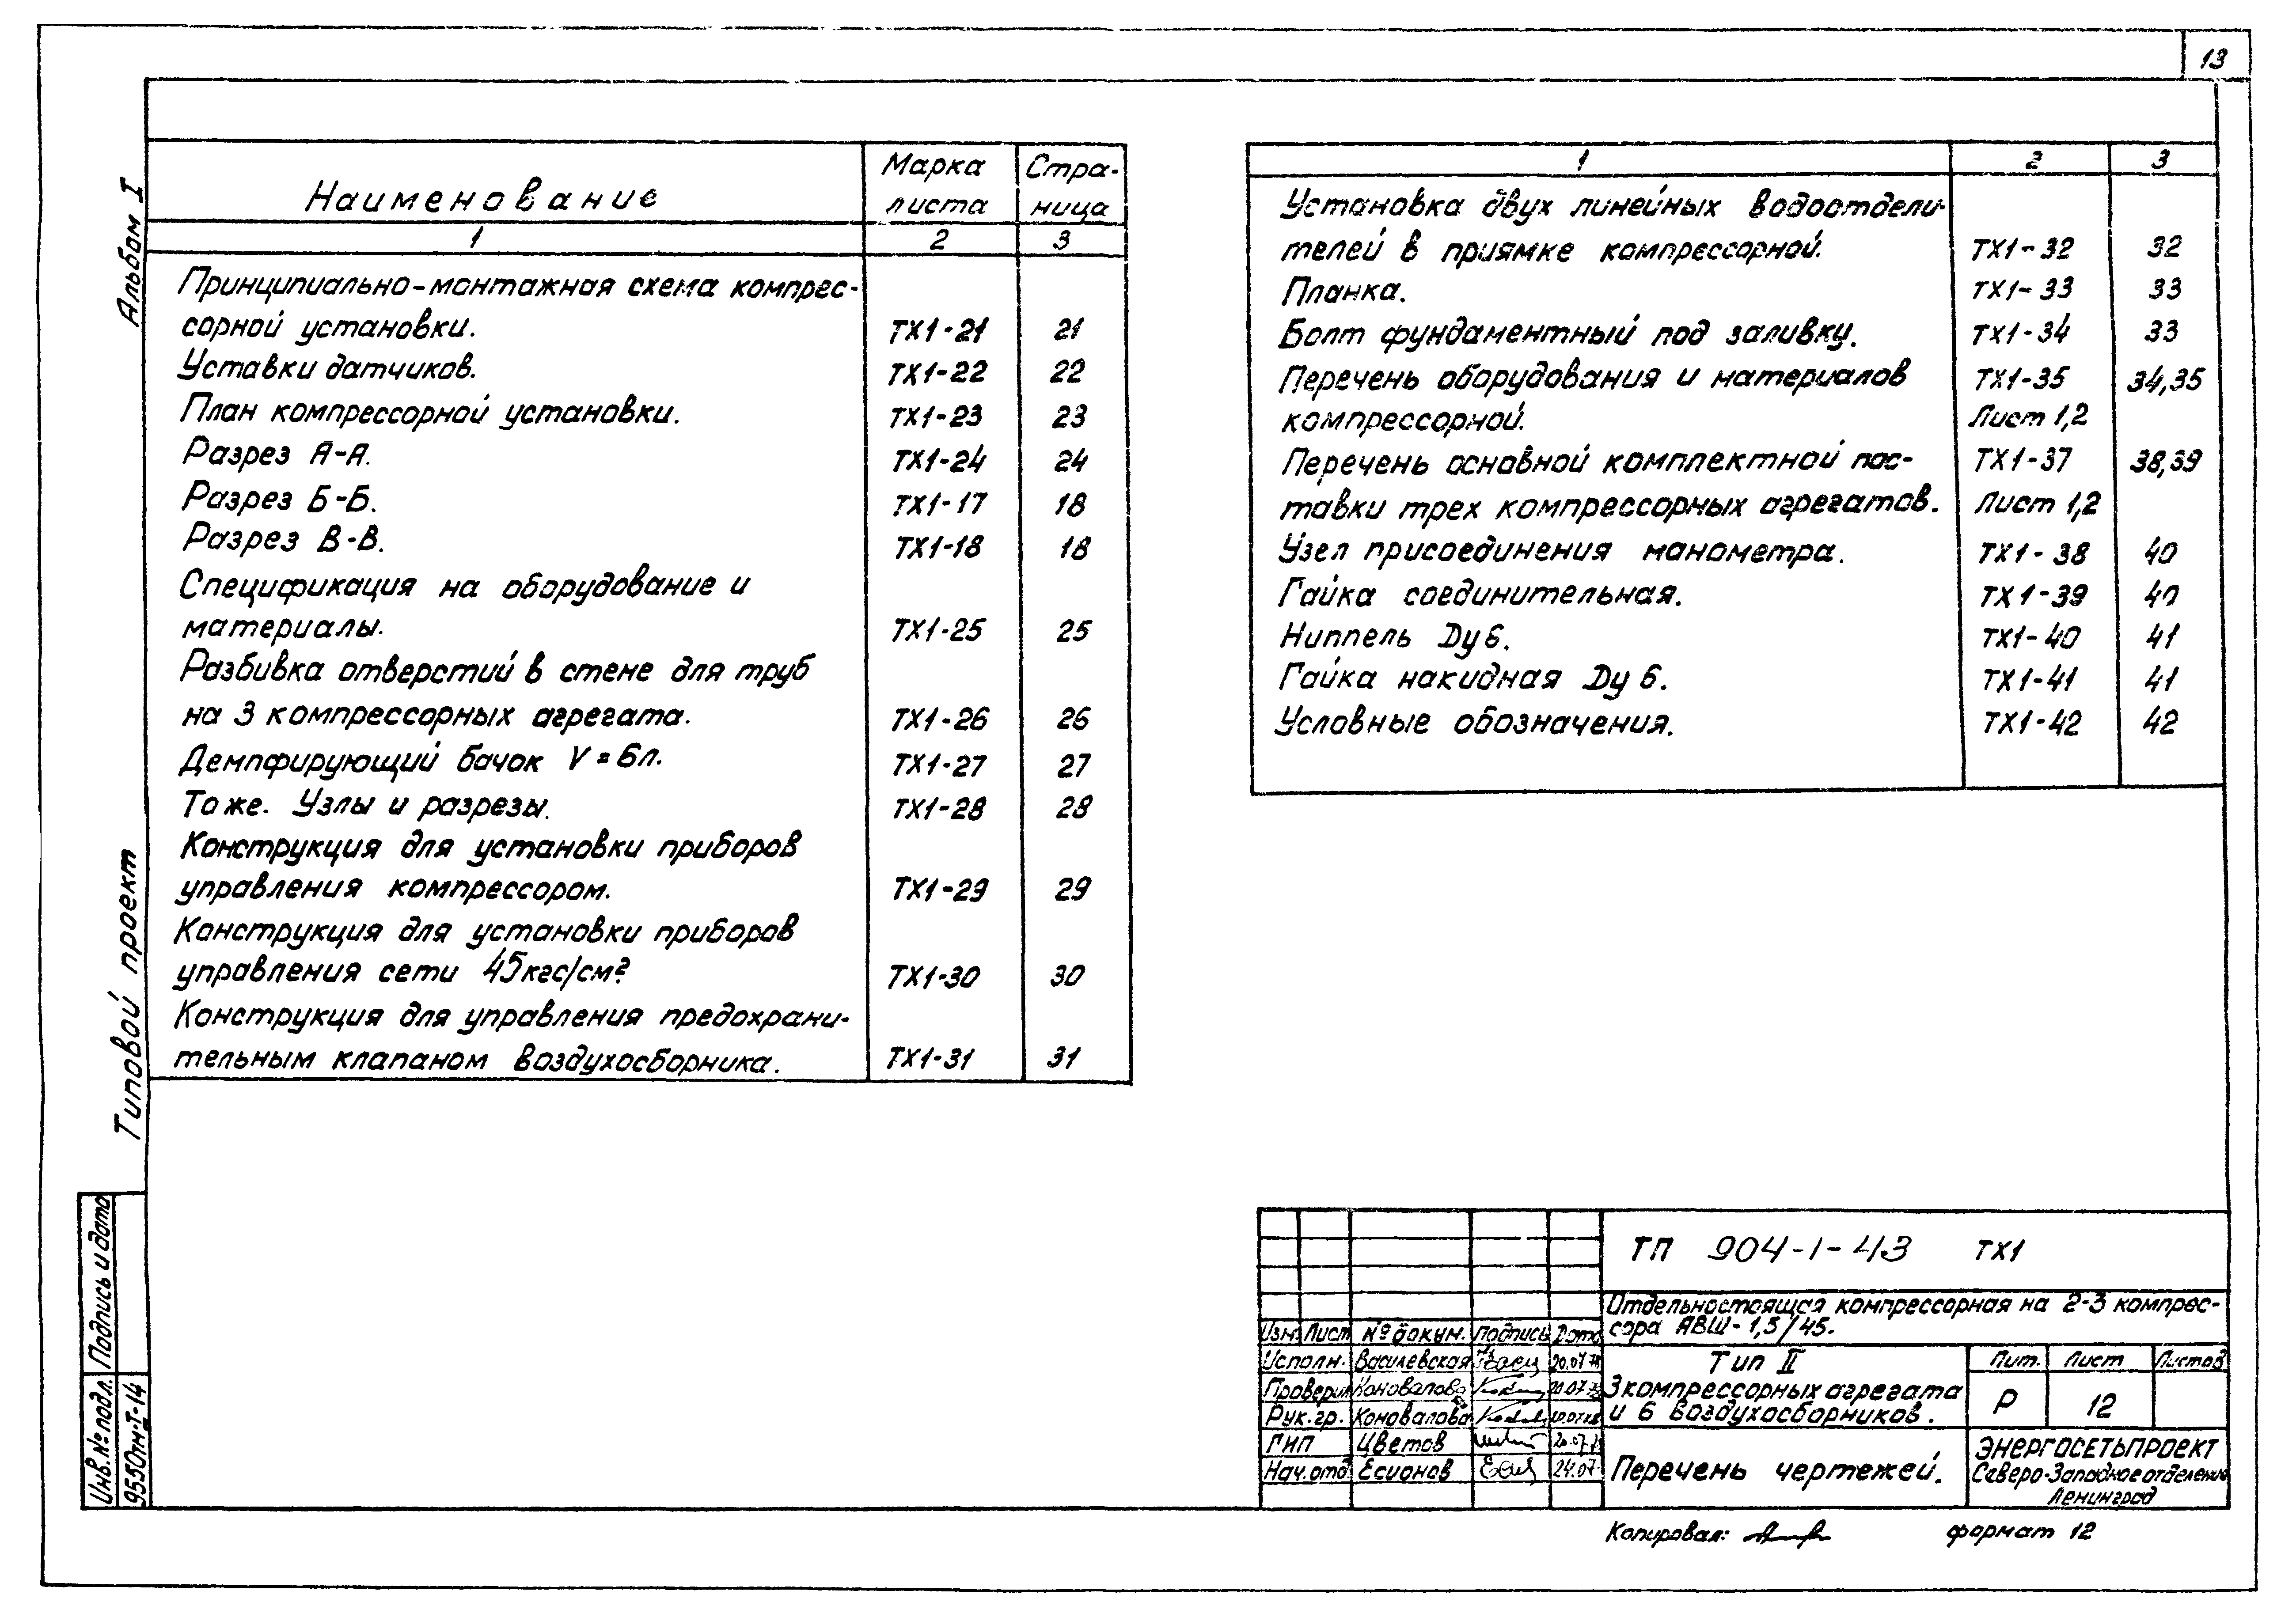 13
Альбом I
Типовой проект
Наименование Марка листа Стра- ница
1 2 3
Принципиально-монтажная схема компрес-
сорной установки. ТХ1-21 21
Уставки датчиков. ТХ1-22 22
План компрессорной установки. ТХ1-23 23
Разрез А-А. ТХ1-24 24
Разрез Б-Б. ТХ1-17 18
Разрез В-В. ТХ1-18 18
Спецификация на оборудование и
материалы. ТХ1-25 25
Разбивка отверстий в стене для труб
на 3 компрессорных агрегата. ТХ1-26 26
Демпфирующий бачок V=6л. ТХ1-27 27
То же. Узлы и разрезы. ТХ1-28 28
Конструкция для установки приборов
управления компрессором. ТХ1-29 29
Конструкция для установки приборов
управления сети 45кгс/см² ТХ1-30 30
Конструкция для управления предохрани-
тельным клапаном воздухосборника. ТХ1-31 31
1 2 3
Установка двух линейных водоотдели-
телей в приямке компрессорной. ТХ1-32 32
Планка. ТХ1-33 33
Болт фундаментный под заливку. ТХ1-34 33
Перечень оборудования и материалов ТХ1-35 34,35
компрессорной. Лист 1,2
Перечень основной комплектной пос- ТХ1-37 38,39
тавки трех компрессорных агрегатов. Лист 1,2
Узел присоединения манометра. ТХ1-38 40
Гайка соединительная. ТХ1-39 40
Ниппель Ду 6. ТХ1-40 41
Гайка накидная Ду 6. ТХ1-41 41
Условные обозначения. ТХ1-42 42
Инв.№ подл. Подпись и дата
9550тм-I-14
ТП 904-1-43 ТХ1
Отдельностоящая компрессорная на 2-3 компрес-
сора АВШ-1,5/45.
Изм. Лист № докум. Подпись Дата
Исполн. Василевская 20.07.78
Проверил Коновалова 20.07.78
Рук.гр. Коновалова 20.07.78
ГИП Цветов 20.07.78
Нач.отд. Есионов 24.07
Тип II
3 компрессорных агрегата
и 6 воздухосборников.
Лит. Лист Листов
Р 12
Перечень чертежей.
ЭНЕРГОСЕТЬПРОЕКТ
Северо-Западное отделение
Ленинград
Копировал: формат 12